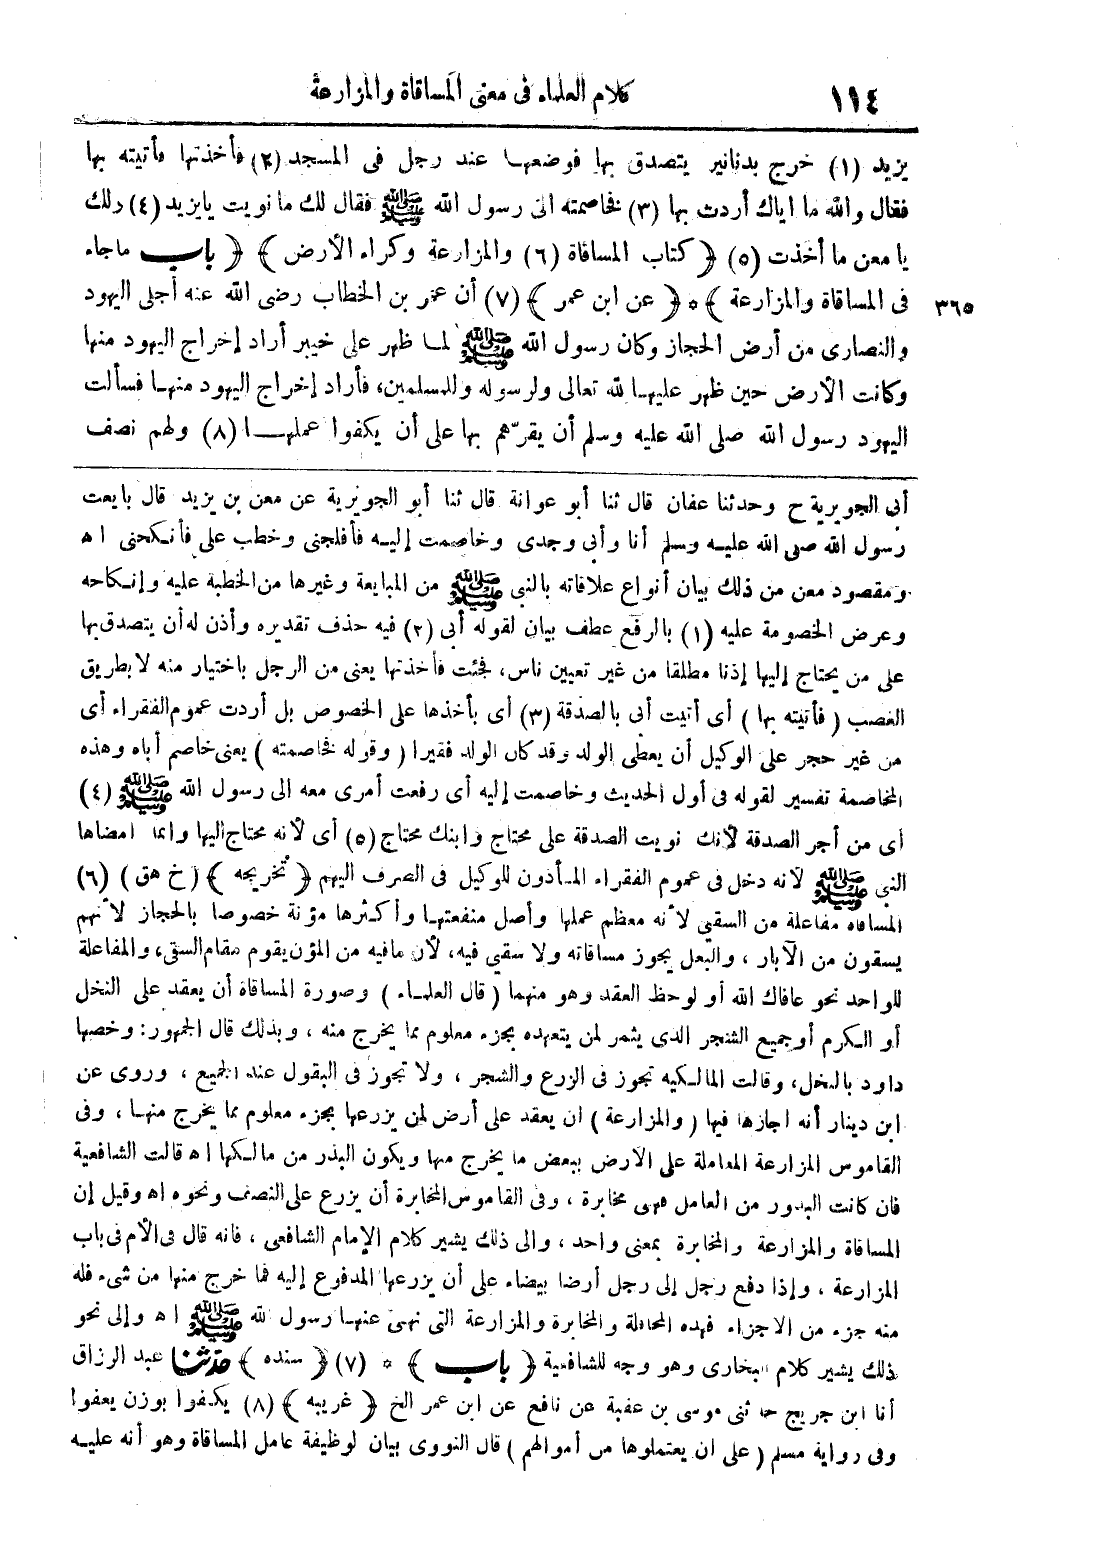 ١١٤ كلام العلماء فى معنى المساقاة والمزارعة
يزيد (١) خرج بدنانير يتصدق بها فوضعها عند رجل فى المسجد (٢) فأخذتها فأتيته بها
فقال والله ما اياك أردت بها (٣) فخاصمته الى رسول الله ﷺ فقال لك ما نويت يايزيد (٤) ولك
يا معن ما أخذت (٥) ﴿ كتاب المساقاة (٦) والمزارعة وكراء الأرض ﴾ ﴿ باب ماجاء
فى المساقاة والمزارعة ﴾ * ﴿ عن ابن عمر ﴾ (٧) أن عمر بن الخطاب رضى الله عنه أجلى اليهود ٣٦٥
والنصارى من أرض الحجاز وكان رسول الله ﷺ لما ظهر على خيبر أراد إخراج اليهود منها
وكانت الأرض حين ظهر عليها لله تعالى ولرسوله وللمسلمين، فأراد إخراج اليهود منها فسألت
اليهود رسول الله صلى الله عليه وسلم أن يقرّهم بها على أن يكفوا عملها (٨) ولهم نصف
أبى الجويرية ح وحدثنا عفان قال ثنا أبو عوانة قال ثنا أبو الجويرية عن معن بن يزيد قال بايعت
رسول الله صلى الله عليه وسلم أنا وأبى وجدى وخاصمت إليه فأفلجنى وخطب على فأنكحنى اه
ومقصود معن من ذلك بيان أنواع علاقاته بالنبى ﷺ من المبايعة وغيرها من الخطبة عليه وإنكاحه
وعرض الخصومة عليه (١) بالرفع عطف بيان لقوله أبى (٢) فيه حذف تقديره وأذن له أن يتصدق بها
على من يحتاج إليها إذنا مطلقا من غير تعيين ناس، فجئت فأخذتها يعنى من الرجل باختيار منه لا بطريق
الغصب ( فأتيته بها ) أى أتيت أبى بالصدقة (٣) أى بأخذها على الخصوص بل أردت عموم الفقراء أى
من غير حجر على الوكيل أن يعطى الولد وقد كان الولد فقيرا ( وقوله فخاصمته ) يعنى خاصم أباه وهذه
المخاصمة تفسير لقوله فى أول الحديث وخاصمت إليه أى رفعت أمرى معه الى رسول الله ﷺ (٤)
أى من أجر الصدقة لأنك نويت الصدقة على محتاج وابنك محتاج (٥) أى لأنه محتاج اليها وانما امضاها
النبى ﷺ لأنه دخل فى عموم الفقراء المأذون للوكيل فى الصرف اليهم ﴿ تخريجه ﴾ ( خ هق ) (٦)
المساقاه مفاعلة من السقي لأنه معظم عملها وأصل منفعتها وأكثرها مؤنة خصوصا بالحجاز لأنهم
يسقون من الآبار ، والبعل يجوز مساقاته ولا سقي فيه، لأن مافيه من المؤن يقوم مقام السقى، والمفاعلة
للواحد نحو عافاك الله أو لوحظ العقد وهو منهما ( قال العلماء ) وصورة المساقاة أن يعقد على النخل
أو الكرم أو جميع الشجر الذى يثمر لمن يتعهده بجزء معلوم مما يخرج منه ، وبذلك قال الجمهور: وخصها
داود بالنخل، وقالت المالكيه تجوز فى الزرع والشجر ، ولا تجوز فى البقول عند الجميع ، وروى عن
ابن دينار أنه اجازها فيها ( والمزارعة ) ان يعقد على أرض لمن يزرعها بجزء معلوم مما يخرج منها ، وفى
القاموس المزارعة المعاملة على الارض ببعض ما يخرج منها ويكون البذر من مالكها اه قالت الشافعية
فان كانت البدور من العامل فهى مخابرة ، وفى القاموس المخابرة أن يزرع على النصف ونحوه اه وقيل إن
المساقاة والمزارعة والمخابرة بمعنى واحد ، والى ذلك يشير كلام الإمام الشافعى ، فانه قال فى الأم فى باب
المزارعة ، وإذا دفع رجل إلى رجل أرضا بيضاء على أن يزرعها المدفوع إليه فما خرج منها من شىء فله
منه جزء من الاجزاء فهذه المحاقلة والمخابرة والمزارعة التى نهى عنها رسول الله ﷺ اه وإلى نحو
ذلك يشير كلام البخارى وهو وجه للشافعية ﴿ باب ﴾ * (٧) ﴿ سنده ﴾ حدثنا عبد الرزاق
أنا ابن جريج حدثنى موسى بن عقبة عن نافع عن ابن عمر الخ ﴿ غريبه ﴾ (٨) يكفوا بوزن يعفوا
وفى رواية مسلم ( على ان يعتملوها من أموالهم ) قال النووى بيان لوظيفة عامل المساقاة وهو أنه عليه